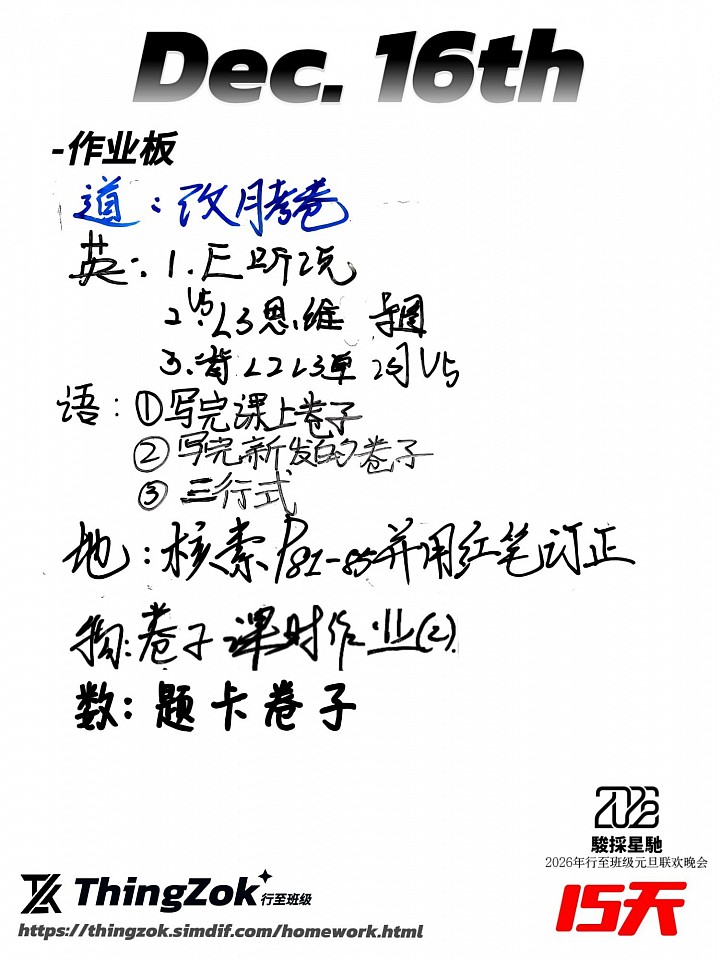 Dec. 16th
-作业板
道：改月考卷
英：1.E听说
2.U5L3思维导图
3.背L2L3单词U5
语：①写完课上卷子
②写完新发的卷子
③三行式
地：核素P81-85并用红笔订正
物：卷子 课时作业(2)
数：题卡卷子
2026
駿採星馳
2026年行至班级元旦联欢晚会
15天
ThingZok 行至班级
https://thingzok.simdif.com/homework.html